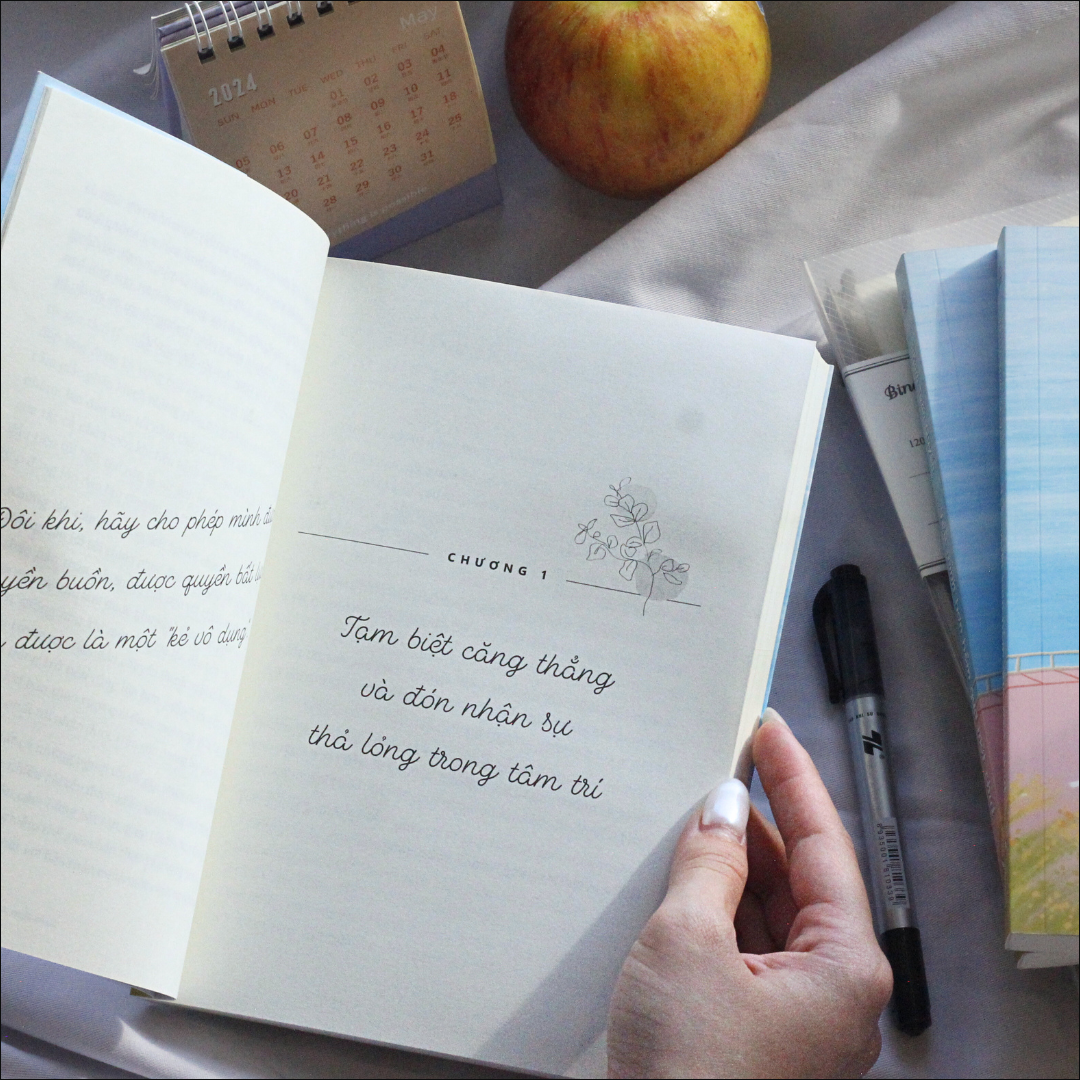 May
2024
SUN MON TUE WED THU FRI SAT
01 02 03 04
05 06 07 08 09 10 11
13 14 15 16 17 18
20 21 22 23 24 25
28 29 30 31
Đôi khi, hãy cho phép mình
buồn, được quyền bất
được là một "kẻ vô dụng"
CHƯƠNG 1
Tạm biệt căng thẳng
và đón nhận sự
thả lỏng trong tâm trí
120